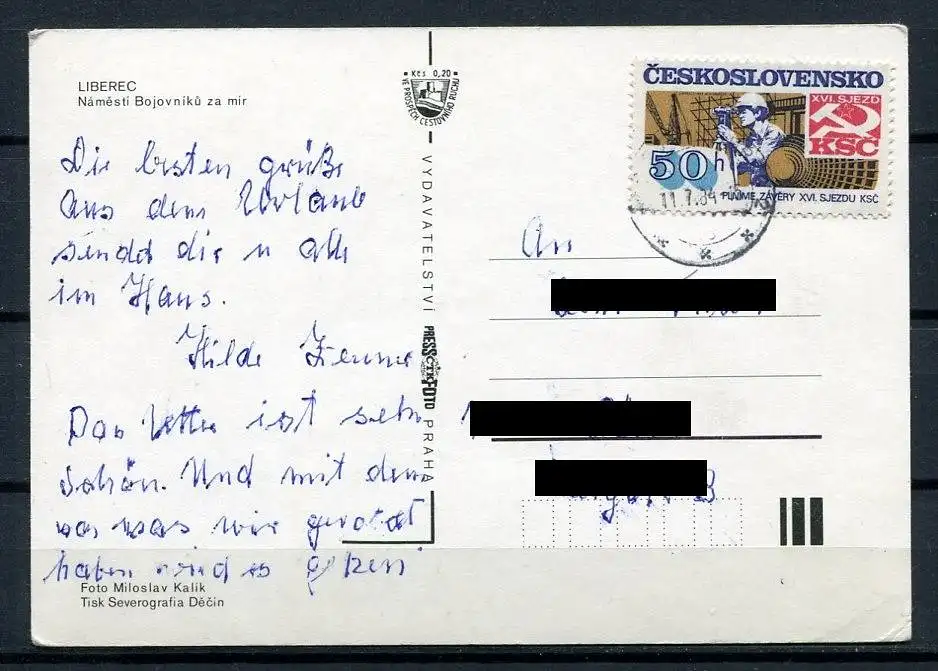 LIBEREC
Náměstí Bojovníků za mír
Die besten grüße
aus dem Urlaub
sendd dir u alle
im Haus.
Hilde
Das Wetter ist sehr
schön. Und mit dem
was wir
haben
Foto Miloslav Kalik
Tisk Severografia Děčín
Kčs 0,20
VE PROSPĚCH CESTOVNÍHO RUCHU
VYDAVATELSTVÍ PRESSFOTO PRAHA
ČTK
ČESKOSLOVENSKO
XVI. SJEZD
KSČ
50 h
PLŇME ZÁVĚRY XVI. SJEZDU KSČ
11.7.84
An